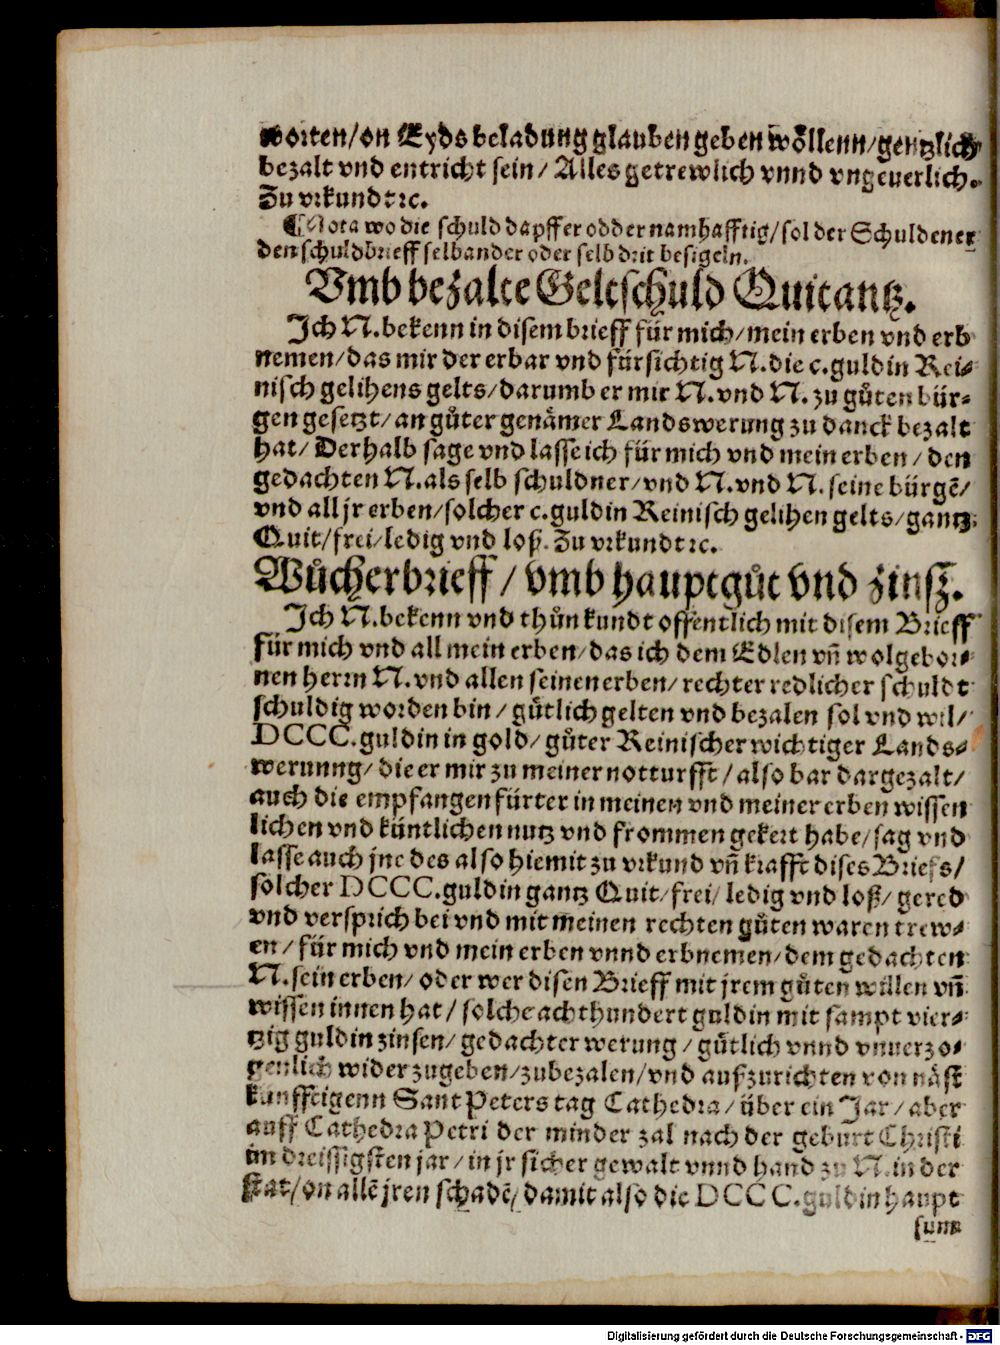 worten/on Eyds beladung glauben geben wöllenn/gentzlich
bezalt vnd entricht sein/ Alles getrewlich vnnd vngeuerlich.
Zu vrkundt ꝛc.
¶Nota wo die schuld dapffer odder namhafftig/sol der Schuldener
den schuldbrieff selbander oder selb drit besigeln.
Vmb bezalte Geltschuld Quitantz.
Ich N.bekenn in disem brieff für mich/mein erben vnd erb
nemen/das mir der erbar vnd fürsichtig N.die c.guldin Rei⸗
nisch gelihens gelts/darumb er mir N.vnd N. zu gůten bür⸗
gen gesetzt/an gůter genämer Landswerung zu danck bezalt
hat/ Derhalb sage vnd lasse ich für mich vnd mein erben/ den
gedachten N.als selb schuldner/vnd N.vnd N. seine bürgē/
vnd all jr erben/solcher c.guldin Reinisch gelihen gelts/gantz
Quit/frei/ledig vnd loß. Zu vrkundt ꝛc.
Wůcherbrieff/ vmb hauptgůt vnd zinsz.
Ich N.bekenn vnd thůn kundt offentlich mit disem Brieff
für mich vnd all mein erben/das ich dem Edlen vñ wolgebor⸗
nen herrn N.vnd allen seinen erben/rechter redlicher schuldt
schuldig worden bin/ gůtlich gelten vnd bezalen sol vnd wil/
DCCC.guldin in gold/ gůter Reinischer wichtiger Lands⸗
werunng/ die er mir zu meiner notturfft/ also bar dargezalt/
auch die empfangen fürter in meinen vnd meiner erben wissen
lichen vnd küntlichen nutz vnd frommen gekert habe/sag vnd
lasse auch jne des also hiemit zu vrkund vñ krafft dises Briefs/
solcher DCCC.guldin gantz Quit/frei/ ledig vnd loß/ gered
vnd versprich bei vnd mit meinen rechten gůten waren trew⸗
en/ für mich vnd mein erben vnnd erbnemen/dem gedachten
N.sein erben/ oder wer disen Brieff mit jrem gůten willen vñ
wissen innen hat/ solche achthundert guldin mit sampt vier⸗
tzig guldin zinsen/ gedachter werung/ gůtlich vnnd vnuerzo⸗
genlich widerzugeben/zubezalen/vnd aufzurichten von näst
kunfftigenn Sant Peters tag Cathedra/ über ein Jar/ aber
auff Cathedra Petri der minder zal nach der geburt Christi
im dreissigsten jar/in jr sicher gewalt vnnd hand zu N.in der
stat/on allē jren schadē/damit also die DCCC.guldin haupt
sum̄
Digitalisierung gefördert durch die Deutsche Forschungsgemeinschaft - DFG